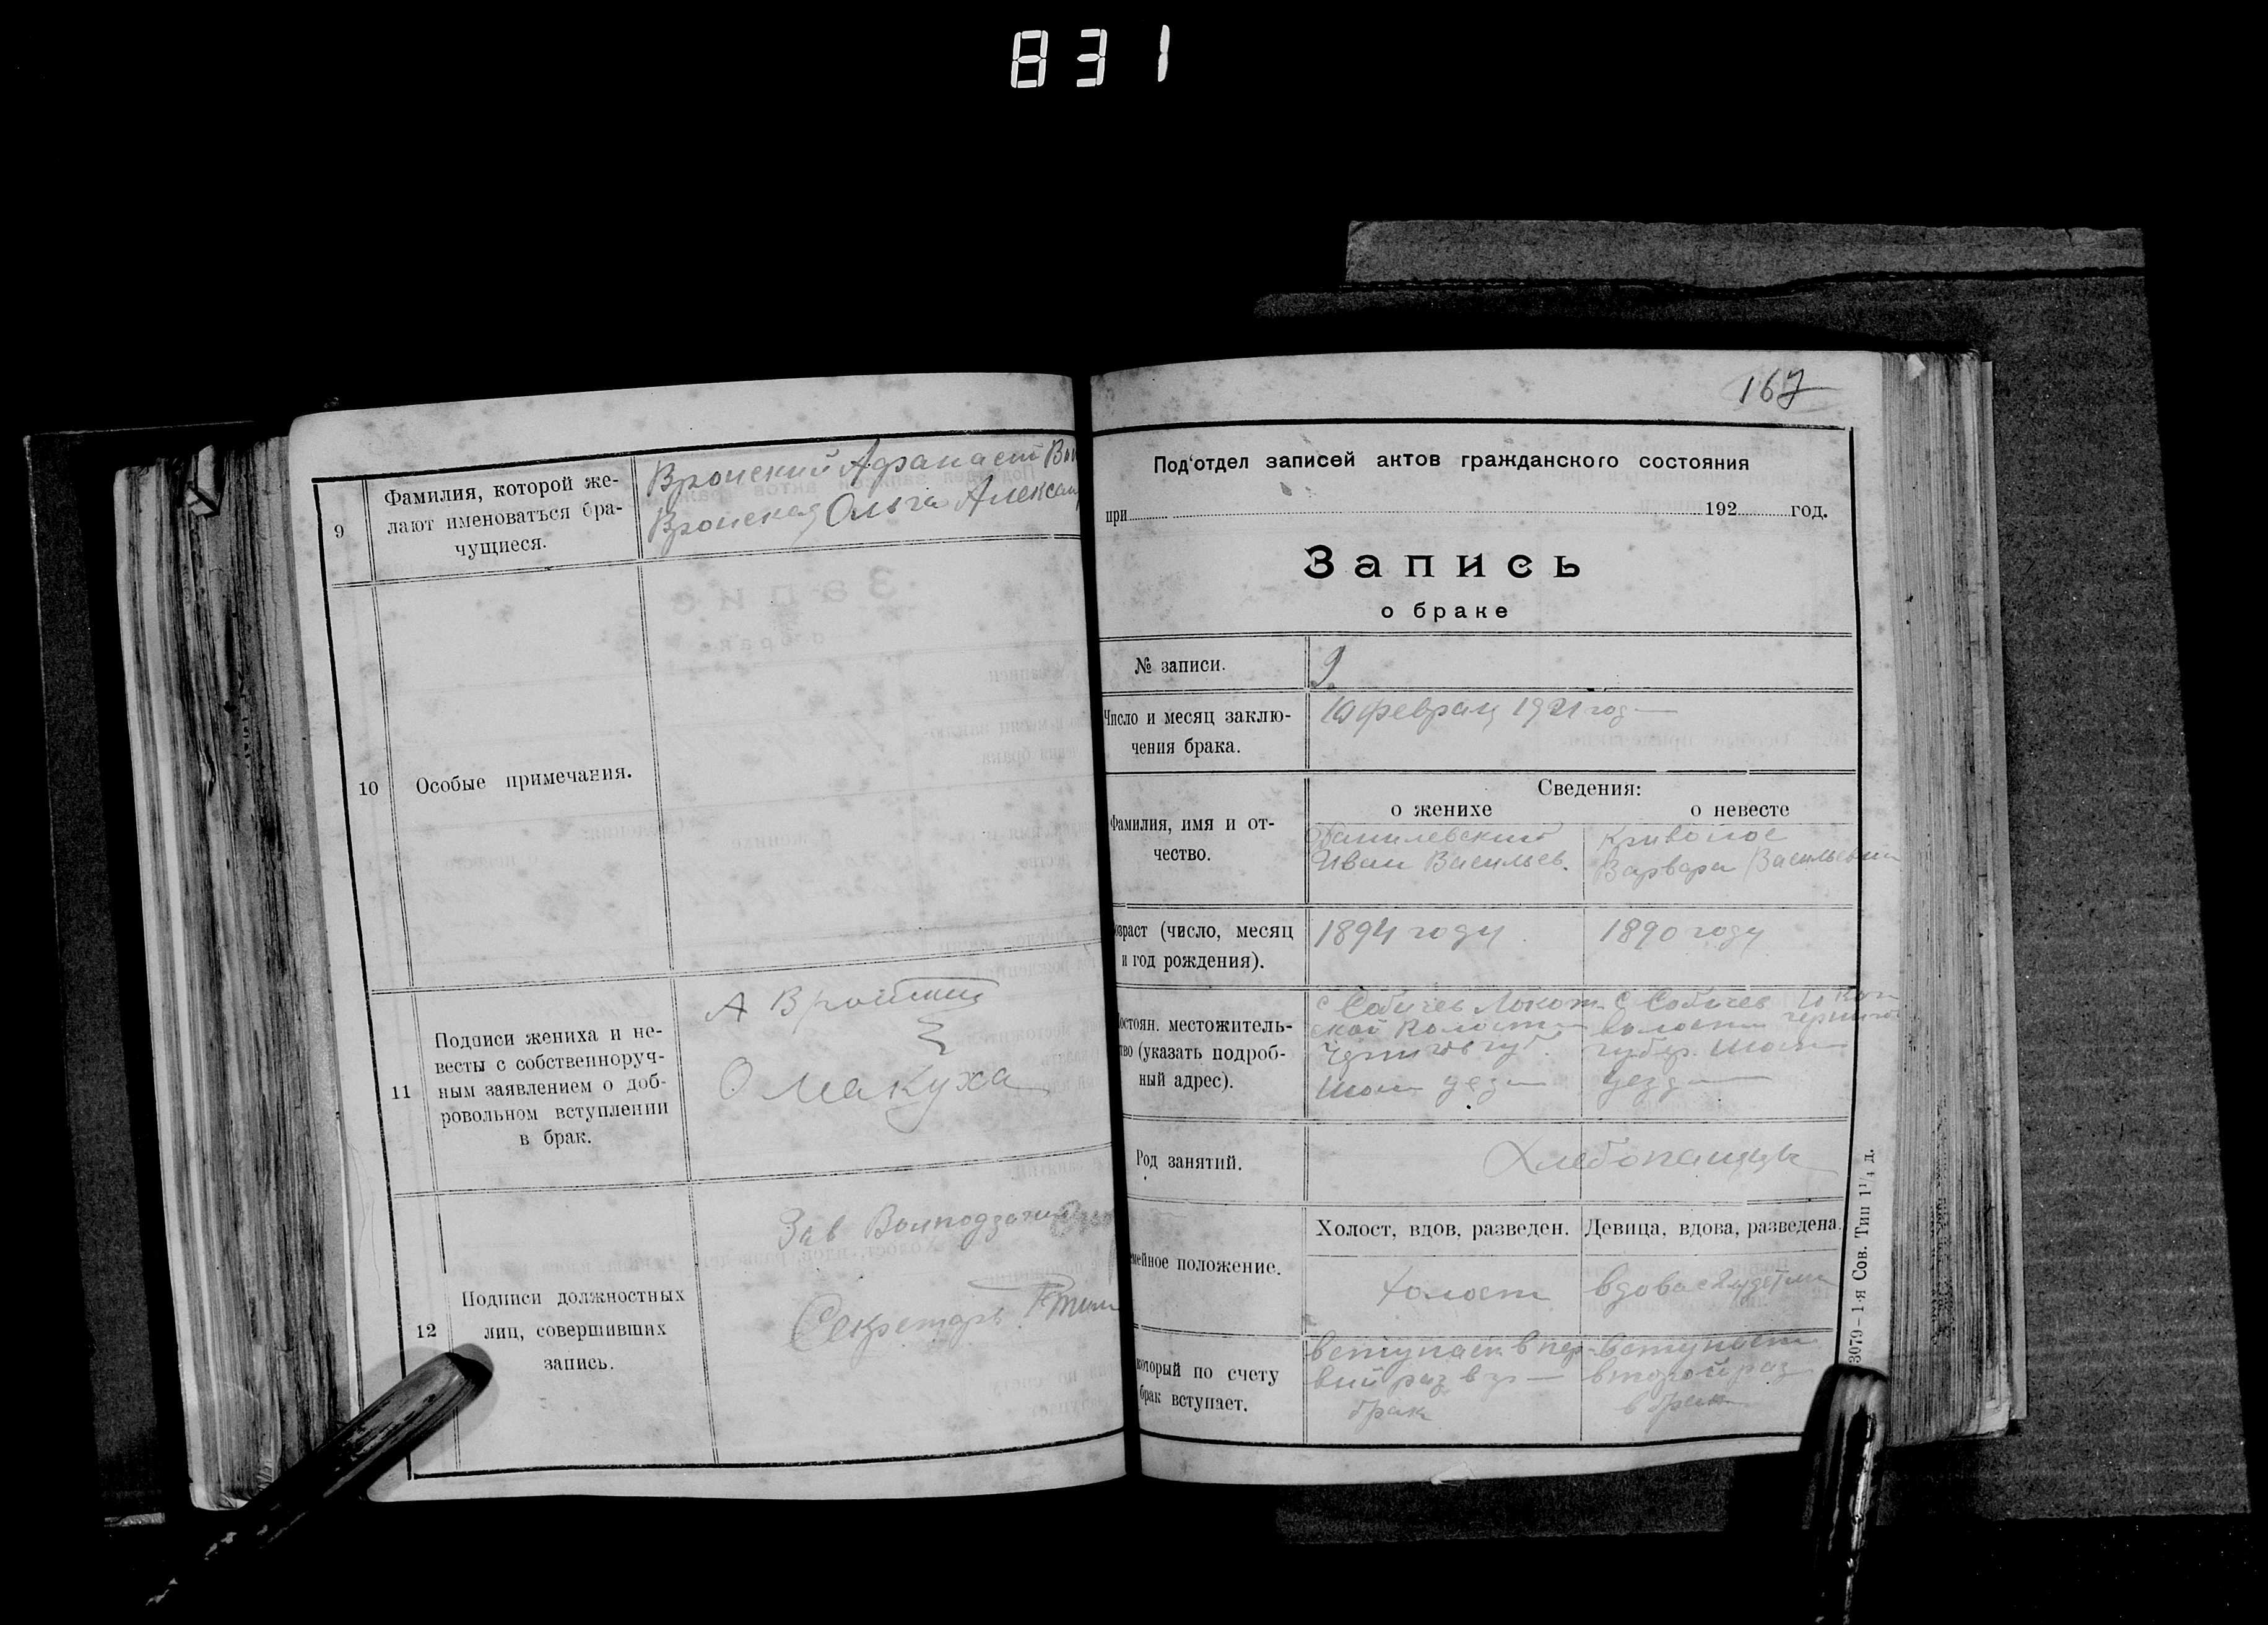 831
9
Фамилия, которой же-
лают именоваться бра-
чущиеся.
Вронский Афанасий
Вронская Ольга Алексан
10
Особые примечания.
11
Подписи жениха и не-
весты с собственноруч-
ным заявлением о доб-
ровольном вступлении
в брак.
А Вронский
О Макуха
12
Подписи должностных
лиц, совершивших
запись.
Зав
Секретарь
167
Под‘отдел записей актов гражданского состояния
при 192 год.
Запись
о браке
№ записи.
9
Число и месяц заклю-
чения брака.
10 феврал 1921 год
Сведения:
о женихе
о невесте
Фамилия, имя и от-
чество.
Данилевский
Иван Васильев.
Кривонос
Варвара Васильевна
озраст (число, месяц
и год рождения).
1894 году
1890 году
остоян. местожитель-
тво (указать подроб-
ный адрес).
с Собичев Локот
ской Волости
Чернигов губ.
уез
с Собичев
волости
губер.
уезд
Род занятий.
Хлебопашцы
мейное положение.
Холост, вдов, разведен.
Девица, вдова, разведена.
холост
вдова
который по счету
брак вступает.
вступает в пер-
вый раз в
брак
вступает
второй раз
в брак
3079 – 1-я Сов. Тип 1¹/₄ д.